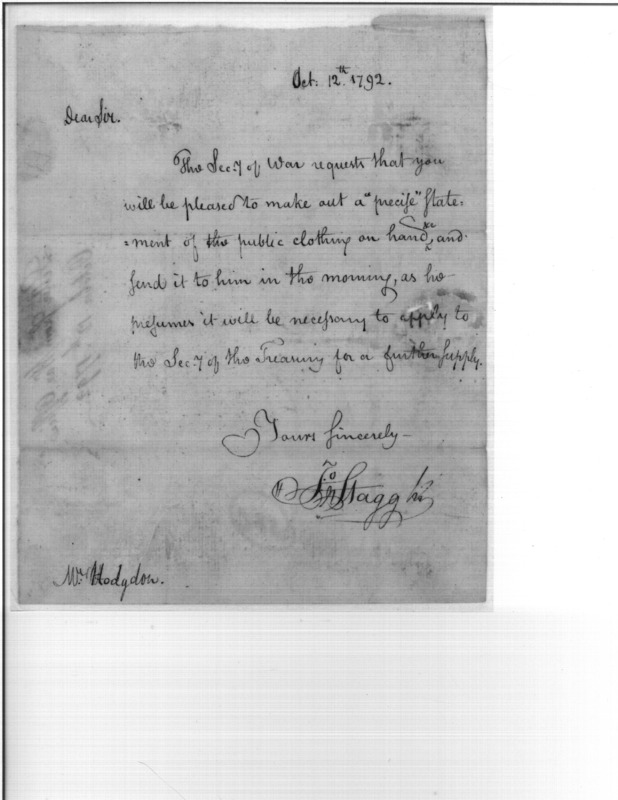 Oct. 12th. 1792.
Dear Sir.
The Secy of War requests that you
will be pleased to make out a "precise" State=
=ment of the public clothing on hand, and
send it to him in the morning, as he
presumes it will be necessary to apply to
the Secy of the Treasury for a further supply.
Yours sincerely
Jno Stagg Jr
Mr. Hodgdon.